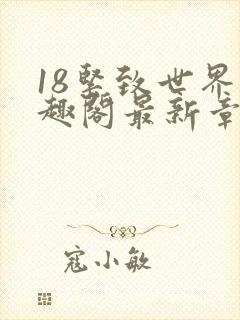 18紧致世界
趣阁最新章
寇小敏